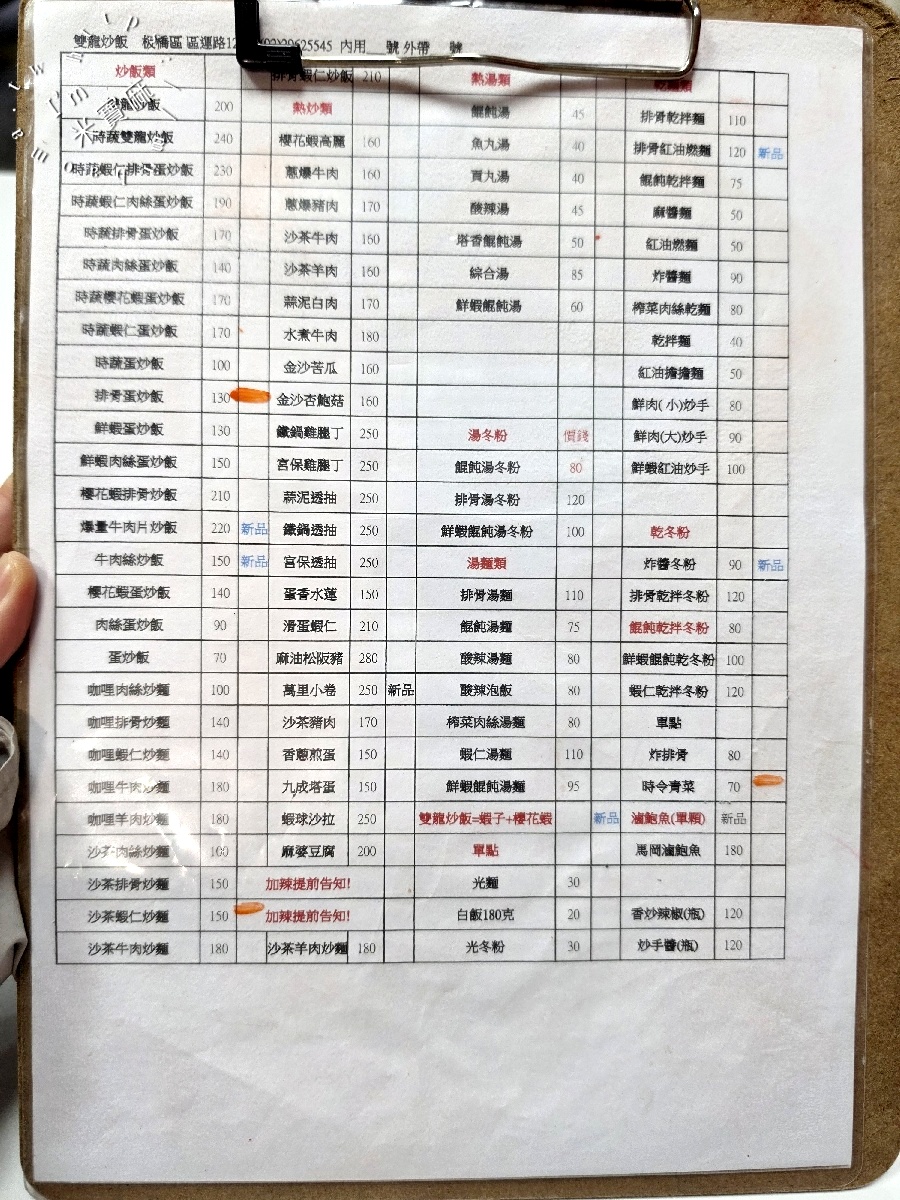 雙龍炒飯 板橋區 區運路12 02)29625545 內用__號 外帶__號
炒飯類 排骨蝦仁炒飯 210 熱湯類
龍炒飯 200 熱炒類 餛飩湯 45 排骨乾拌麵 110
時蔬雙龍炒飯 240 櫻花蝦高麗 160 魚丸湯 40 排骨紅油燃麵 120 新品
時蔬蝦仁排骨蛋炒飯 230 蔥爆牛肉 160 貢丸湯 40 餛飩乾拌麵 75
時蔬蝦仁肉絲蛋炒飯 190 蔥爆豬肉 170 酸辣湯 45 麻醬麵 50
時蔬排骨蛋炒飯 170 沙茶牛肉 160 塔香餛飩湯 50 紅油燃麵 50
時蔬肉絲蛋炒飯 140 沙茶羊肉 160 綜合湯 85 炸醬麵 90
時蔬櫻花蝦蛋炒飯 170 蒜泥白肉 170 鮮蝦餛飩湯 60 榨菜肉絲乾麵 80
時蔬蝦仁蛋炒飯 170 水煮牛肉 180 乾拌麵 40
時蔬蛋炒飯 100 金沙苦瓜 160 紅油擔擔麵 50
排骨蛋炒飯 130 金沙杏鮑菇 160 鮮肉( 小)炒手 80
鮮蝦蛋炒飯 130 鐵鍋雞腿丁 250 湯冬粉 價錢 鮮肉(大)炒手 90
鮮蝦肉絲蛋炒飯 150 宮保雞腿丁 250 餛飩湯冬粉 80 鮮蝦紅油炒手 100
櫻花蝦排骨炒飯 210 蒜泥透抽 250 排骨湯冬粉 120
爆量牛肉片炒飯 220 新品 鐵鍋透抽 250 鮮蝦餛飩湯冬粉 100 乾冬粉
牛肉絲炒飯 150 新品 宮保透抽 250 湯麵類 炸醬冬粉 90 新品
櫻花蝦蛋炒飯 140 蛋香水蓮 150 排骨湯麵 110 排骨乾拌冬粉 120
肉絲蛋炒飯 90 滑蛋蝦仁 210 餛飩湯麵 75 餛飩乾拌冬粉 80
蛋炒飯 70 麻油松阪豬 280 酸辣湯麵 80 鮮蝦餛飩乾冬粉 100
咖哩肉絲炒麵 100 萬里小卷 250 新品 酸辣泡飯 80 蝦仁乾拌冬粉 120
咖哩排骨炒麵 140 沙茶豬肉 170 榨菜肉絲湯麵 80 單點
咖哩蝦仁炒麵 140 香蔥煎蛋 150 蝦仁湯麵 110 炸排骨 80
咖哩牛肉炒麵 180 九成塔蛋 150 鮮蝦餛飩湯麵 95 時令青菜 70
咖哩羊肉炒麵 180 蝦球沙拉 250 雙龍炒飯=蝦子+櫻花蝦 新品 滷鮑魚(單顆) 新品
沙茶肉絲炒麵 100 麻婆豆腐 200 單點 馬岡滷鮑魚 180
沙茶排骨炒麵 150 加辣提前告知! 光麵 30
沙茶蝦仁炒麵 150 加辣提前告知! 白飯180克 20 香炒辣椒(瓶) 120
沙茶牛肉炒麵 180 沙茶羊肉炒麵 180 光冬粉 30 炒手醬(瓶) 120